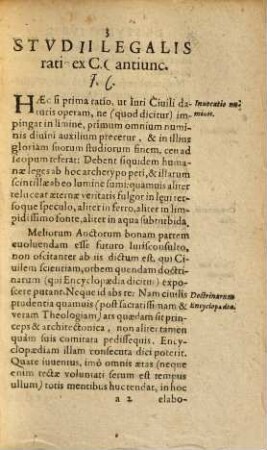 3
STVDII LEGALIS
ratio ex C. Cantiunc.
J. C.
HÆc si prima ratio, ut Iuri Ciuili daturis
operam, ne (quod dicitur) im-
pingat in limine, primum omnium numi-
nis diuini auxilium precetur, & in illius
gloriam suorum studiorum finem, ceu ad
scopum referat: Debent siquidem humanæ
leges ab hoc archetypo peti, & illarum
scintillæ ab eo lumine sumi: quamuis aliter
teluceat æternæ veritatis fulgor in legū ter-
soque speculo, aliter in ferro, aliter in lim-
pidissimo fonte, aliter in aqua substribida.
Inuocatio nu-
minis.
Meliorum Auctorum bonam partem
euoluendam esse futuro Iurisconsulto,
non oscitanter ab iis dictum est, qui Ci-
uilem scientiam, orbem quendam doctri-
narum (qui Encyclopædia dicitur) expo-
scere putant. Neque id abs re: Nam ciuilis
prudentia quamuis (post sacratissimam &
veram Theologiam) ars quædam sit prin-
ceps & architectonica, non aliter tamen
quàm suis comitata pedissequis. Ency-
clopædiam illam consecuta dici poterit.
Quare iuuentus, imò omnis ætas (neque
enim rectæ voluntati serum est tempus
ullum) totis mentibus huc tendat, in hoc
Doctrinarum
Encyclopædia.
a 2 elabo-